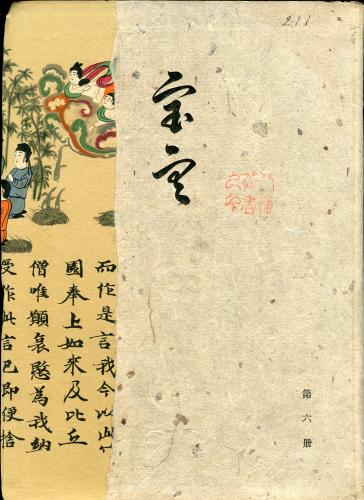 211
宝雲
第六册
而作是言我今以此
園奉上如來及比丘
僧唯願哀愍為我納
受作此言已即便捨